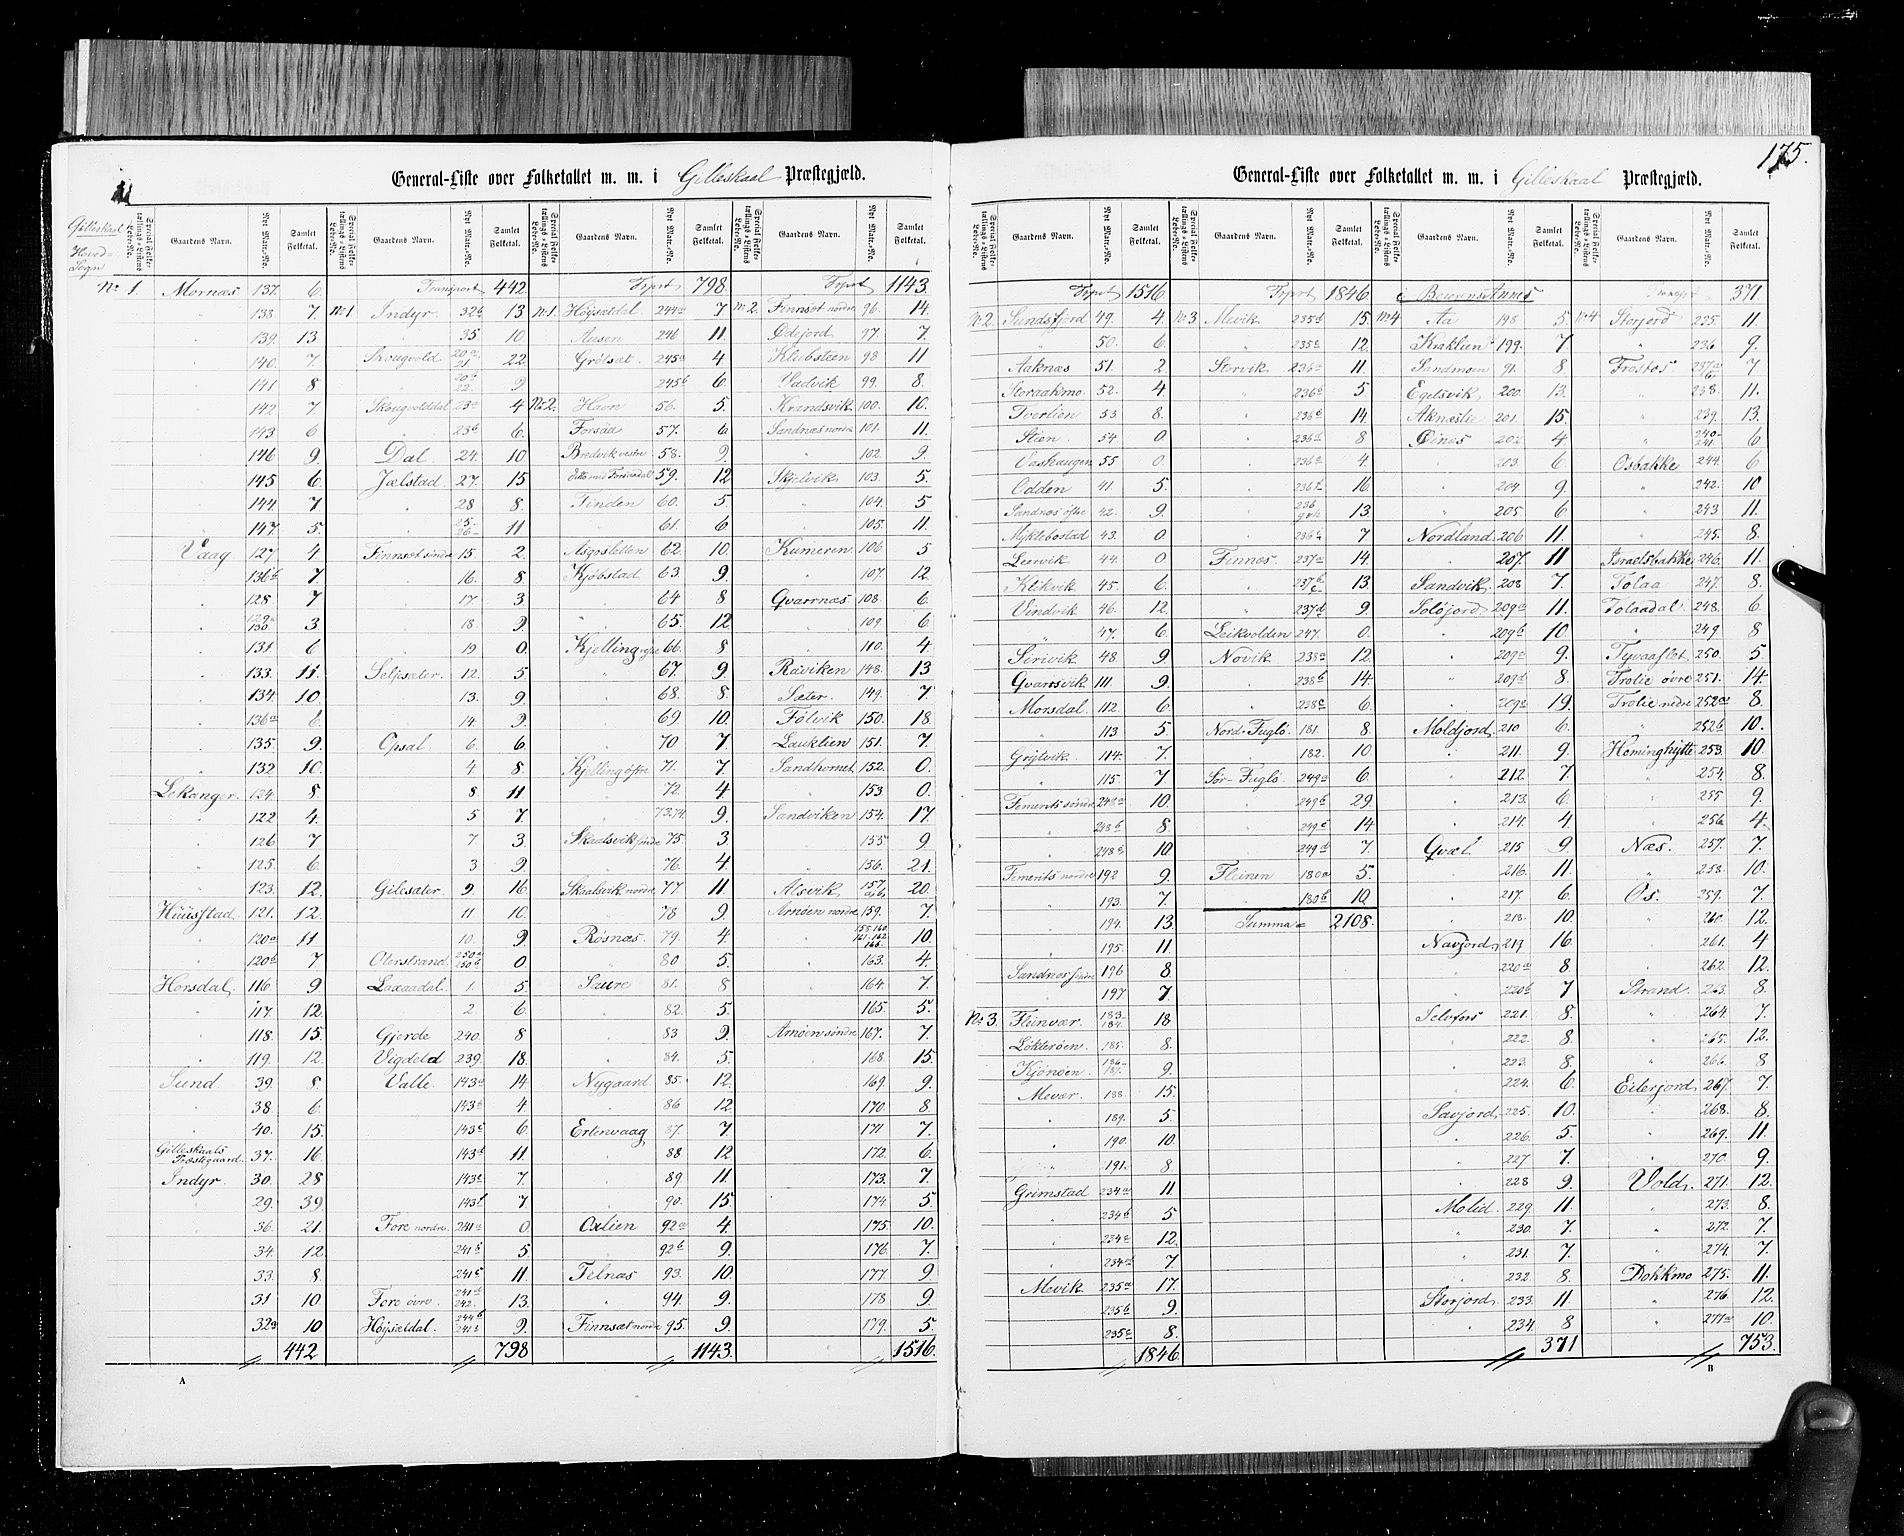 175.
General-Liste over Folketallet m. m. i Gilleskaal Præstegjæld.
Gilleskaal
Hoved=
Sogn
Special Folketællings-Listens Løbe-No. Gaardens Navn. Nyt Matr.-No. Samlet Folketal.
No 1. Mornæs 137. 6.
" 138 7
" 139. 13
" 140. 7.
" 141 8
" 142 7.
" 143 6
" 146 9.
" 145 6
" 144. 7
" 147. 5.
Vaag 127 4
136b 7
" 128 7
" 129a 130 3
131 6
" 133. 11.
134. 10
" 136a 6
" 135. 9
" 132 10.
Lekanger. 124. 8
" 122 4.
" 126 7
" 125. 6.
" 123. 12.
Hüüsstad 121. 12.
" 120a 11
120b 7
Horsdal, 116 9
" 117. 12
" 118. 15
" 119. 12
Sund 39. 8
" 38. 6.
" 40. 15.
Gilleskaals Præstegaard. 37. 16
Indyr. 30. 28
29. 39.
36. 21
34. 12.
33. 8.
31 10
32a 10
442
Special Folketællings-Listens Løbe-No. Gaardens Navn. Nyt Matr.-No. Samlet Folketal.
Transport 442
No 1 Indyr. 32b 13
" 35 10
Skougvold 20a 21 22
20b 22. 9
Skougvolddal 23a 4
" 23b 6.
Dal 24. 10
Jælstad 27. 15
" 28 8.
25- 26- 11
Finnsæt søndre 15. 2.
16. 8
" 17. 3
" 18. 9
19 0.
Selsæter. 12. 5
" 13. 9
14. 9
Opsal 6. 6.
4. 8.
8 11
5 7.
7. 3
3 9
Gilesæter 9. 16
11 10.
10. 9
Oterstrand 250a 250b 0
Laxaadal. 1. 5
2 6.
Gjerde 240. 8
Vigdeld 239. 18.
Valle. 143a 14
143b 4
143c 6
143d 11
143e 7.
143f 7
Fore nordre 241a 0
241b 5.
241c 11
Fore øvre. 241d 242. 13.
Højsældal. 9.
798
Special Folketællings-Listens Løbe-No. Gaardens Navn. Nyt Matr.-No. Samlet Folketal.
Trprt 798.
No 1. Højsældal 244a 7
Ausen 246 11
Grølsæt. 245a 4
245b 6.
No 2. Havn 56. 5.
Forsaa 57. 6
Bredvik vestre 58. 9.
59. 12
Finden 60. 5
61. 6
Asgosletten 62. 10.
Kjøbstad 63. 9.
" 64 8
" 65. 12
Kjelling 66. 8
67. 9
" 68. 8.
69 10.
70 7
Kjelling øfre 71. 7.
" 72 4
73.74. 9.
Skaalsvik søndre 75. 3.
76. 4
Skaalsvik nordre, 77 11
78 9
Røsnæs. 79. 4.
80 5.
Saure 81. 8
82. 5.
83 9
84. 5
Nygaard. 85. 12.
86 12.
Ertenvaag 87 7
88 12
89 11.
90. 15.
Oxlien 92a 4
92b 9.
Telnæs 93. 10
94. 9.
Finnsæt nordre 95. 9.
1143
Special Folketællings-Listens Løbe-No. Gaardens Navn. Nyt Matr.-No. Samlet Folketal.
Trprt 1143.
No 2. Finnsæt nordre 96. 14.
Ødejord 97. 7.
Klubsteen 98 11
Vadvik 99. 8.
Krandsvik. 100. 10.
Sandnæs nordre 101. 11
" 102. 9
Skjelvik. 103. 5.
104. 5
105. 11
Kumeren 106 5
107. 12
Qvarrnæs 108. 6.
109. 6
110. 4
Raviken 148. 13
Sæter. 149. 7
Følvik 150. 18
Lauklien 151. 7.
Sandhornet 152. 0.
153 0.
Sandviken 154. 17.
155 9
156. 21.
Alsvik. 157 20
Arnøen nordre 159. 7.
10.
163. 4
164. 7.
165. 5.
Arnøen søndre 167. 7.
168 15
169. 9.
170. 8.
171 7.
172. 6
173. 7.
174. 5
175 10.
176. 7.
177. 9
178 9
179. 5
1516.
A
General-Liste over Folketallet m. m. i Gilleskaal Præstegjæld.
Special Folketællings-Listens Løbe-No. Gaardens Navn. Nyt Matr.-No. Samlet Folketal.
Trprt 1516
No 2. Sundsfjord 49. 4.
" 50. 6.
Aaknæs 51. 2
Storaakmo 52. 4
Tverlien 53 8.
Stien. 54 0
Vashaugen 55 0.
Odden 41. 5
Sandnæs øfre 42. 9.
Myklebostad 43. 0.
Leervik 44. 0
Klikvik 45. 6.
Vindvik 46. 12.
" 47. 6
Sørivik 48. 9
Qvarsvik 111. 9.
Morsdal 112. 6
" 113 5
Grytvik. 114. 7.
" 115. 7
248a 10.
248b 8.
248c 10
192 9.
193. 7.
194. 13
195. 11
Sandnæs søndre 196 8.
197 7
No 3. Fleinvær. 183- 184. 18
Løkterøen 185. 8.
Kjønøen. 186- 187. 9.
Mevær. 188. 15
" 189. 5
" 190. 10
191. 8
Grimstad 234a 11
234b 5
234c 12
234d 7
Mevik 235a 17.
235b 9.
235c 8.
1846.
Special Folketællings-Listens Løbe-No. Gaardens Navn. Nyt Matr.-No. Samlet Folketal.
Trprt 1846
No 3. Mevik 235d 15.
235e 12.
Storvik 236a 11.
236b 5
" 236c 14.
236d 8
236e 4.
236f 16.
13.
7
Finnæs 237a 14.
13.
237d 9
Leikvolden 247. 0.
Novik 238a 12.
238b 14.
238c 6.
Nord-Fuglø. 181. 8.
182. 10
Sør-Fuglø. 249a 6.
249b 29.
249c 14.
249d 7.
Fleinen 180a 5.
180b 10.
Summa= 2108.
Special Folketællings-Listens Løbe-No. Gaardens Navn. Nyt Matr.-No. Samlet Folketal.
i Beierens Annex
No 4 Aa 198 5.
Kraklien 199. 7
Sandmoen 91. 8
Egelsvik 200. 13.
Aknæslie 201. 15
Øinæs 202 4
203. 6
204 9.
205 6
Nordland 206 11.
207. 11
Sandvik 208 7.
Soløjord 209a 11.
209b 10.
209c 9.
209d 8.
209e 19.
Moldjord. 210 6.
211. 9.
212. 7
213. 6.
214. 4
Qvæl 215 9
216. 11.
217. 6
218. 10
Navjord 219 16.
220a 8.
220b 7
Selvfors 221. 8.
222. 8
223. 8
224. 6
Savjord. 225. 10.
226. 5.
227. 7.
228 9
Molid 229. 11.
230. 7.
231. 7.
232. 8
Storjord. 233. 11
234. 8
371
Special Folketællings-Listens Løbe-No. Gaardens Navn. Nyt Matr.-No. Samlet Folketal.
Transprt 371
No 4 Storjord 235. 11.
236 9.
Trostos 237a 7
238. 11.
239. 13.
240- 241. 6
Osbakke 244. 6
242. 10
243 11
245. 8.
Israelsbakke 246. 11.
Tolaa 247. 8
Tolaadal. 248. 6
249 8
Tyvaaflot 250. 5
Trolie øvre 251. 14.
Trolie nedre 252a 8.
252b 10.
Hominghytte 253. 10
254 8.
255 9.
256. 4.
Næs. 257. 7
258. 10.
Os. 259. 7
260 12
261. 4
262. 12
Strand. 263. 8.
264 7.
265. 12
266. 8
Eilerjord. 267. 7.
268. 8
269. 11
270 9.
Vold. 271. 12
273. 8
272. 7
274. 7.
Dokkmo 275. 11.
276 12
277a 10.
753.
B